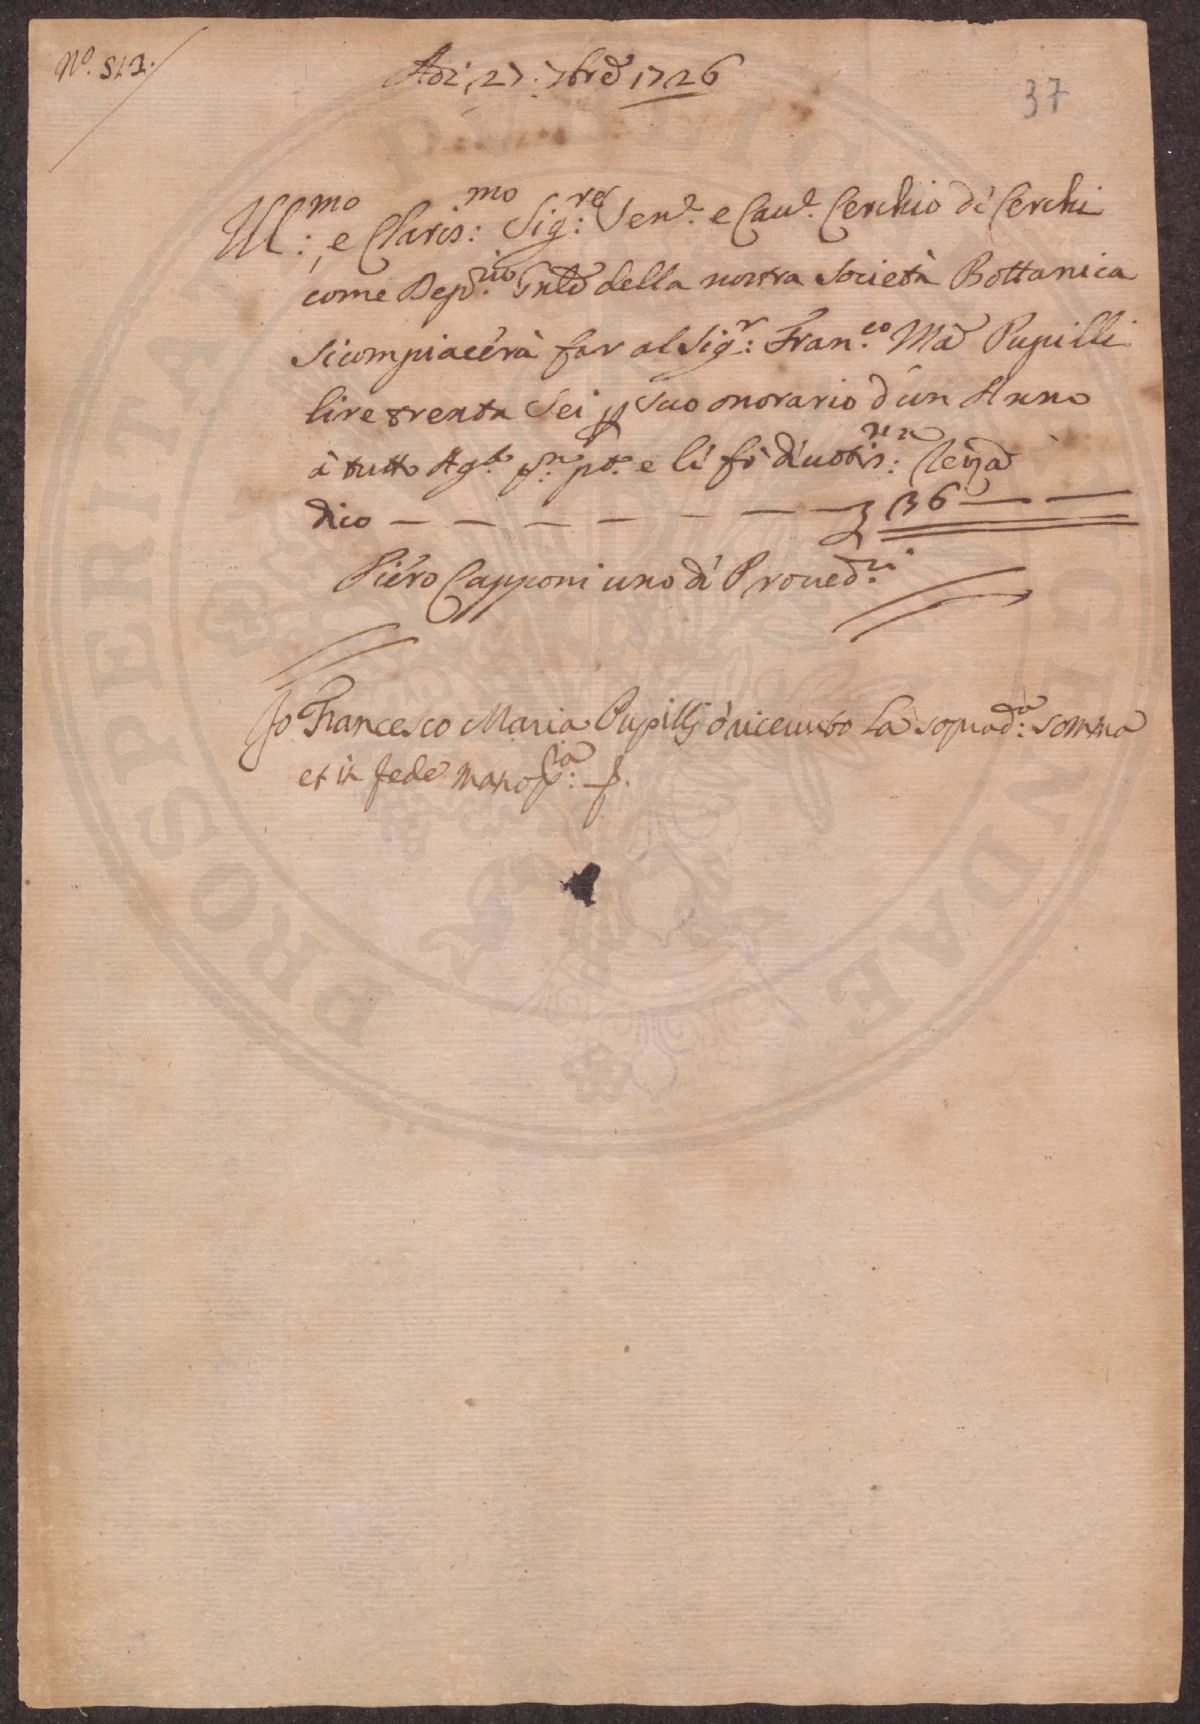 No. 513.
Adi 27: 7bre 1726
37
Ill:mo e Claris:mo Sig:re Sen:e e Cau:e Cerchio di Cerchi
come Dep:rio Gnle della nostra Società Bottanica
si compiacerà far al Sig:r Fran:co Ma Pupilli
lire trenta sei p suo onorario d'un Anno
à tutto Ag:to e li fò diuotis:ma
dico — — — — — — — — 36 — —
Piero Capponi uno di Proued:ri
Io Francesco Maria Pupillj ò riceuuto La soprad:a somma
et in fede mano p:ia
PUBLICAE FELICITATI PROSPERITATI